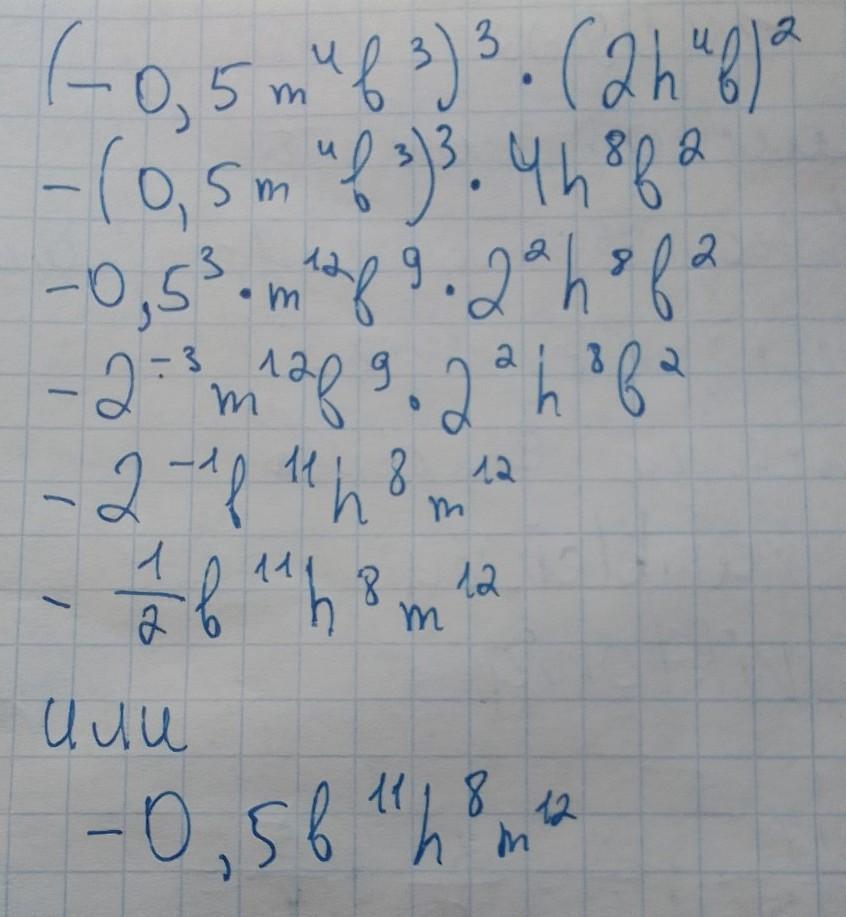 (-0,5m⁴b³)³·(2h⁴b)²
-(0,5m⁴b³)³·4h⁸b²
-0,5³·m¹²b⁹·2²h⁸b²
-2⁻³m¹²b⁹·2²h⁸b²
-2⁻¹b¹¹h⁸m¹²
-1/2b¹¹h⁸m¹²
или
-0,5b¹¹h⁸m¹²